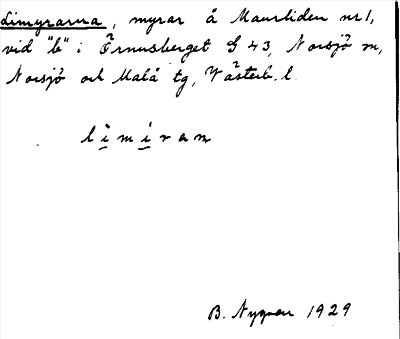 Limyrarna, myrar å Maurliden nr 1,
vid "b" i Örnusberget G 43, Norsjö sn,
Norsjö och Malå tg, Västerb. l.
limiran
B. Nygren 1929